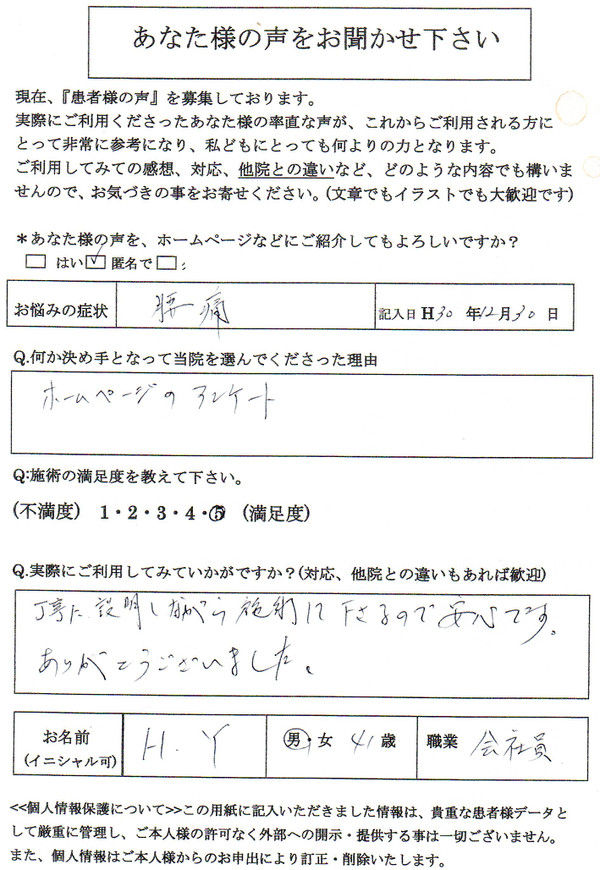 あなた様の声をお聞かせ下さい
現在、『患者様の声』を募集しております。
実際にご利用くださったあなた様の率直な声が、これからご利用される方に
とって非常に参考になり、私どもにとっても何よりの力となります。
ご利用してみての感想、対応、他院との違いなど、どのような内容でも構いま
せんので、お気づきの事をお寄せください。(文章でもイラストでも大歓迎です)
*あなた様の声を、ホームページなどにご紹介してもよろしいですか？
□ はい ☑ 匿名で □
お悩みの症状 腰痛 記入日 H30 年12月30 日
Q.何か決め手となって当院を選んでくださった理由
ホームページのアンケート
Q:施術の満足度を教えて下さい。
(不満度) 1・2・3・4・⑤ (満足度)
Q.実際にご利用してみていかがですか？(対応、他院との違いもあれば歓迎)
丁寧に説明しながら施術して下さるので安心です。
ありがとうございました。
お名前 H.Y 男・女 41歳 職業 会社員
(イニシャル可)
<<個人情報保護について>>この用紙に記入いただきました情報は、貴重な患者様データと
して厳重に管理し、ご本人様の許可なく外部への開示・提供する事は一切ございません。
また、個人情報はご本人様からのお申出により訂正・削除いたします。